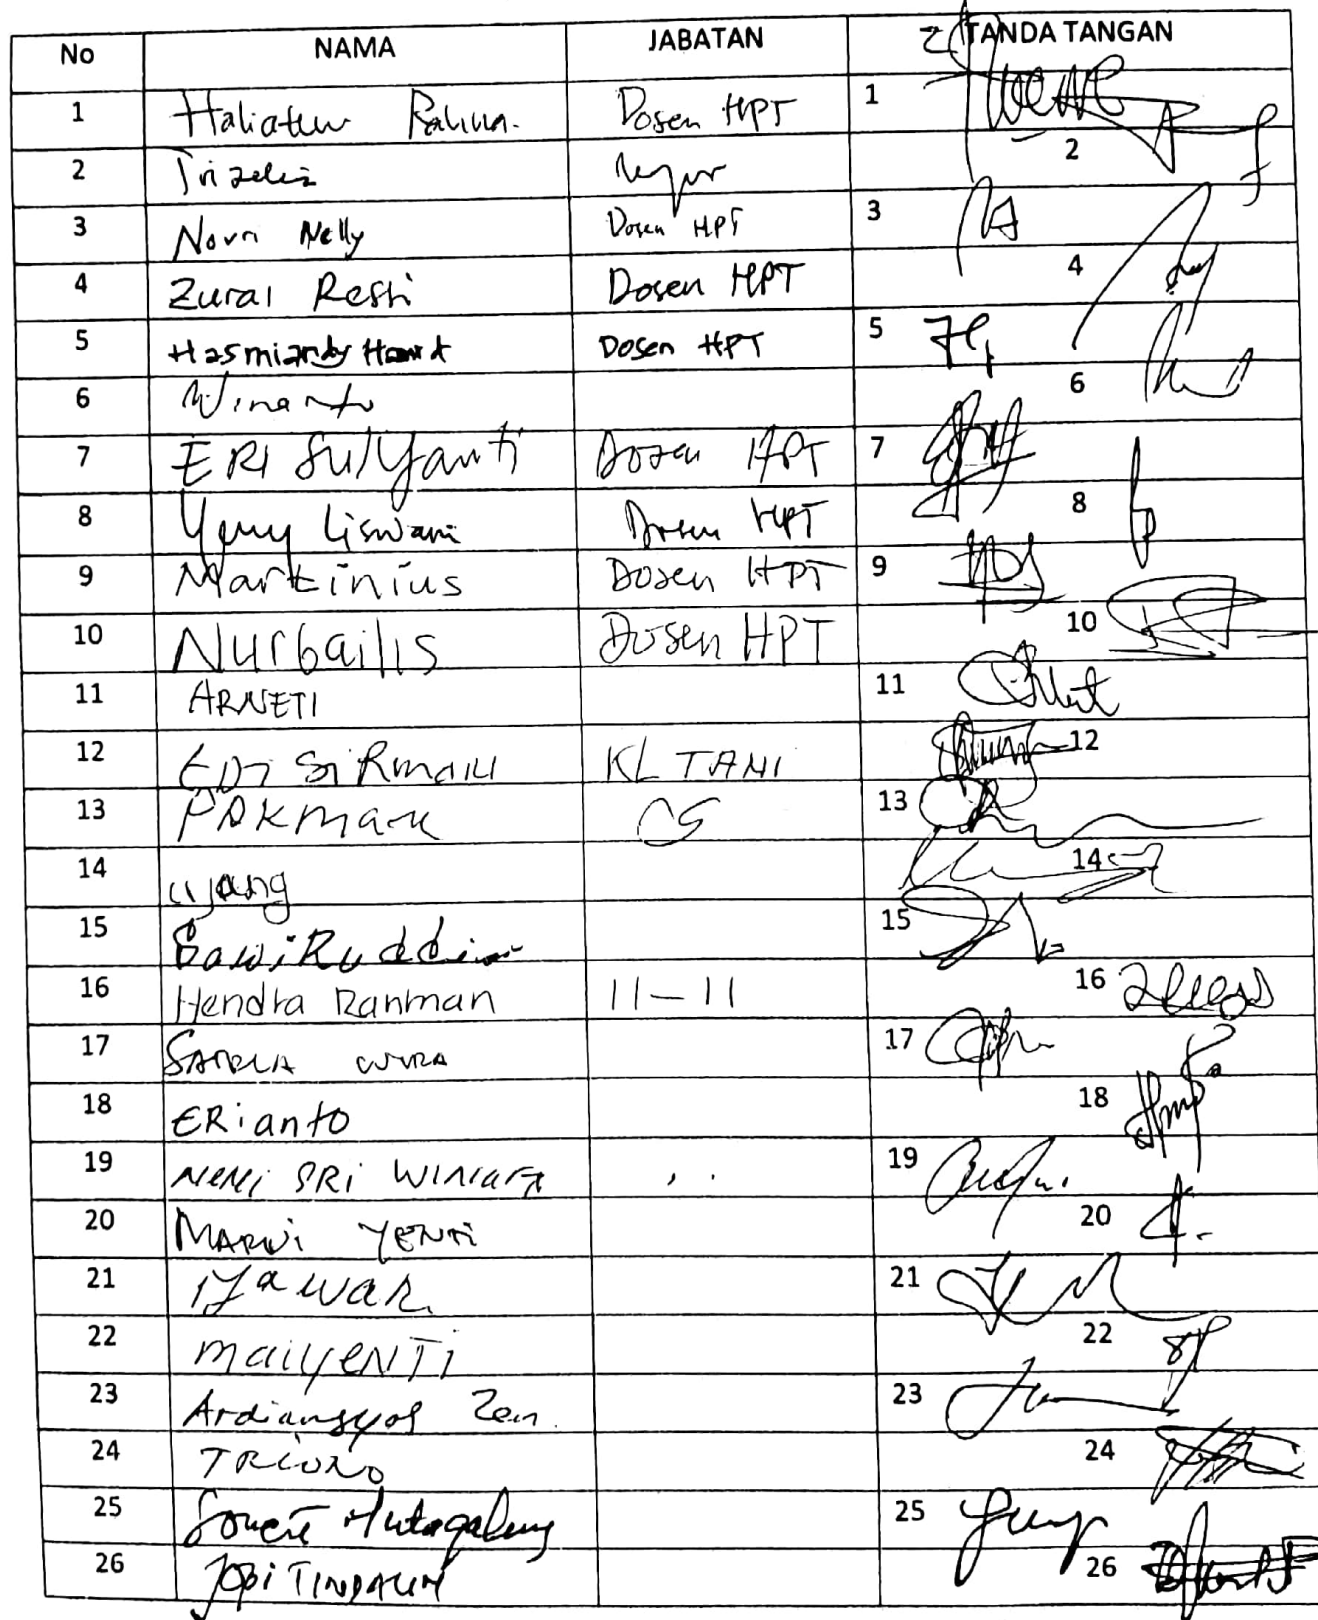 No NAMA JABATAN TANDA TANGAN
1 Haliatur Rahma. Dosen HPT 1
2 Trizelia 2
3 Novri Nelly Dosen HPT 3
4 Zurai Resti Dosen HPT 4
5 Hasmiandy Hamid Dosen HPT 5
6 Winarto 6
7 ERI Sulyanti Dosen HPT 7
8 Yenny Liswarni Dosen HPT 8
9 Martinius Dosen HPT 9
10 Nurbailis Dosen HPT 10
11 ARNETI 11
12 EDI SiRman KL TANI 12
13 PAKman CS 13
14 ujang 14
15 SawiRuddin 15
16 Hendra Rahman 11-11 16
17 SATRIA WIRA 17
18 ERianto 18
19 NENi SRi WINIARTI 19
20 MARNi YENTi 20
21 21
22 maiyENTi 22
23 Ardiansyos Zen. 23
24 TRiONO 24
25 Hutagalung 25
26 JOBi TINDAUN 26